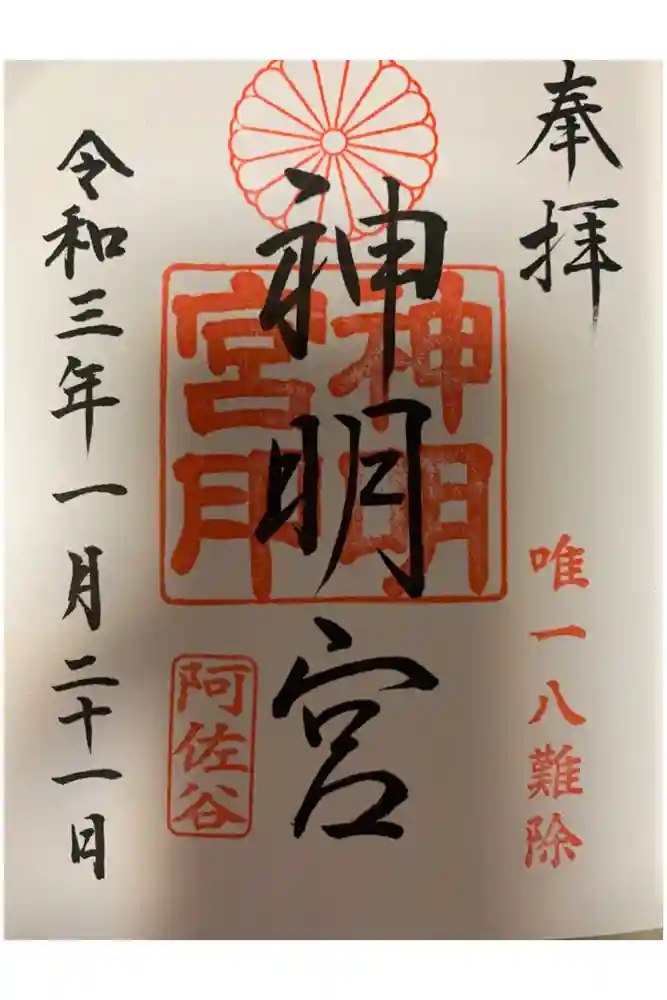 奉拝
唯一八難除
神明宮
神明
宮印
阿佐谷
令和三年一月二十一日